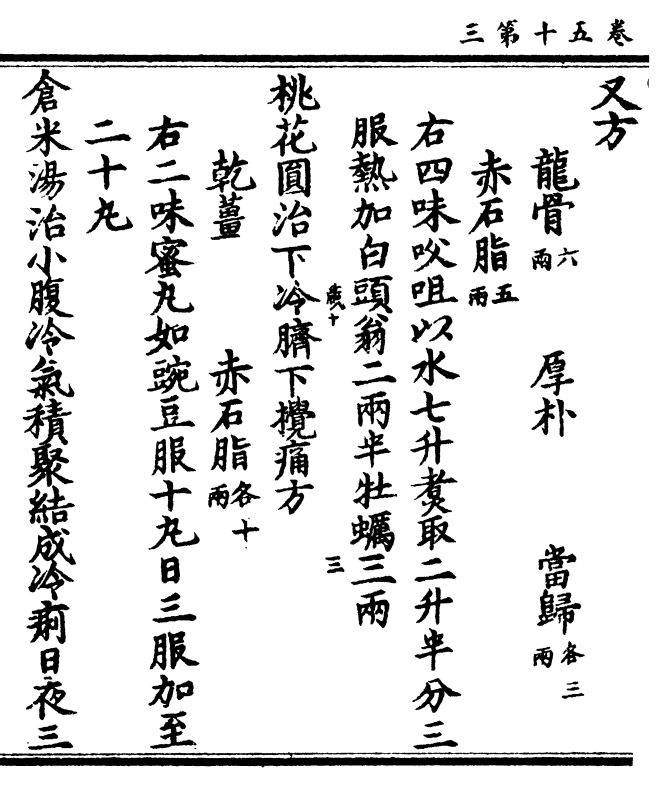 卷五十第三
又方
龍骨六兩　厚朴　當歸各三兩
赤石脂五兩
右四味㕮咀以水七升煑取二升半分三
服熱加白頭翁二兩半牡蠣三兩
三
桃花圓治下冷臍下攪痛方
乾薑　赤石脂各十兩
右二味蜜丸如豌豆服十丸日三服加至
二十丸
倉米湯治小腹冷氣積聚結成冷痢日夜三